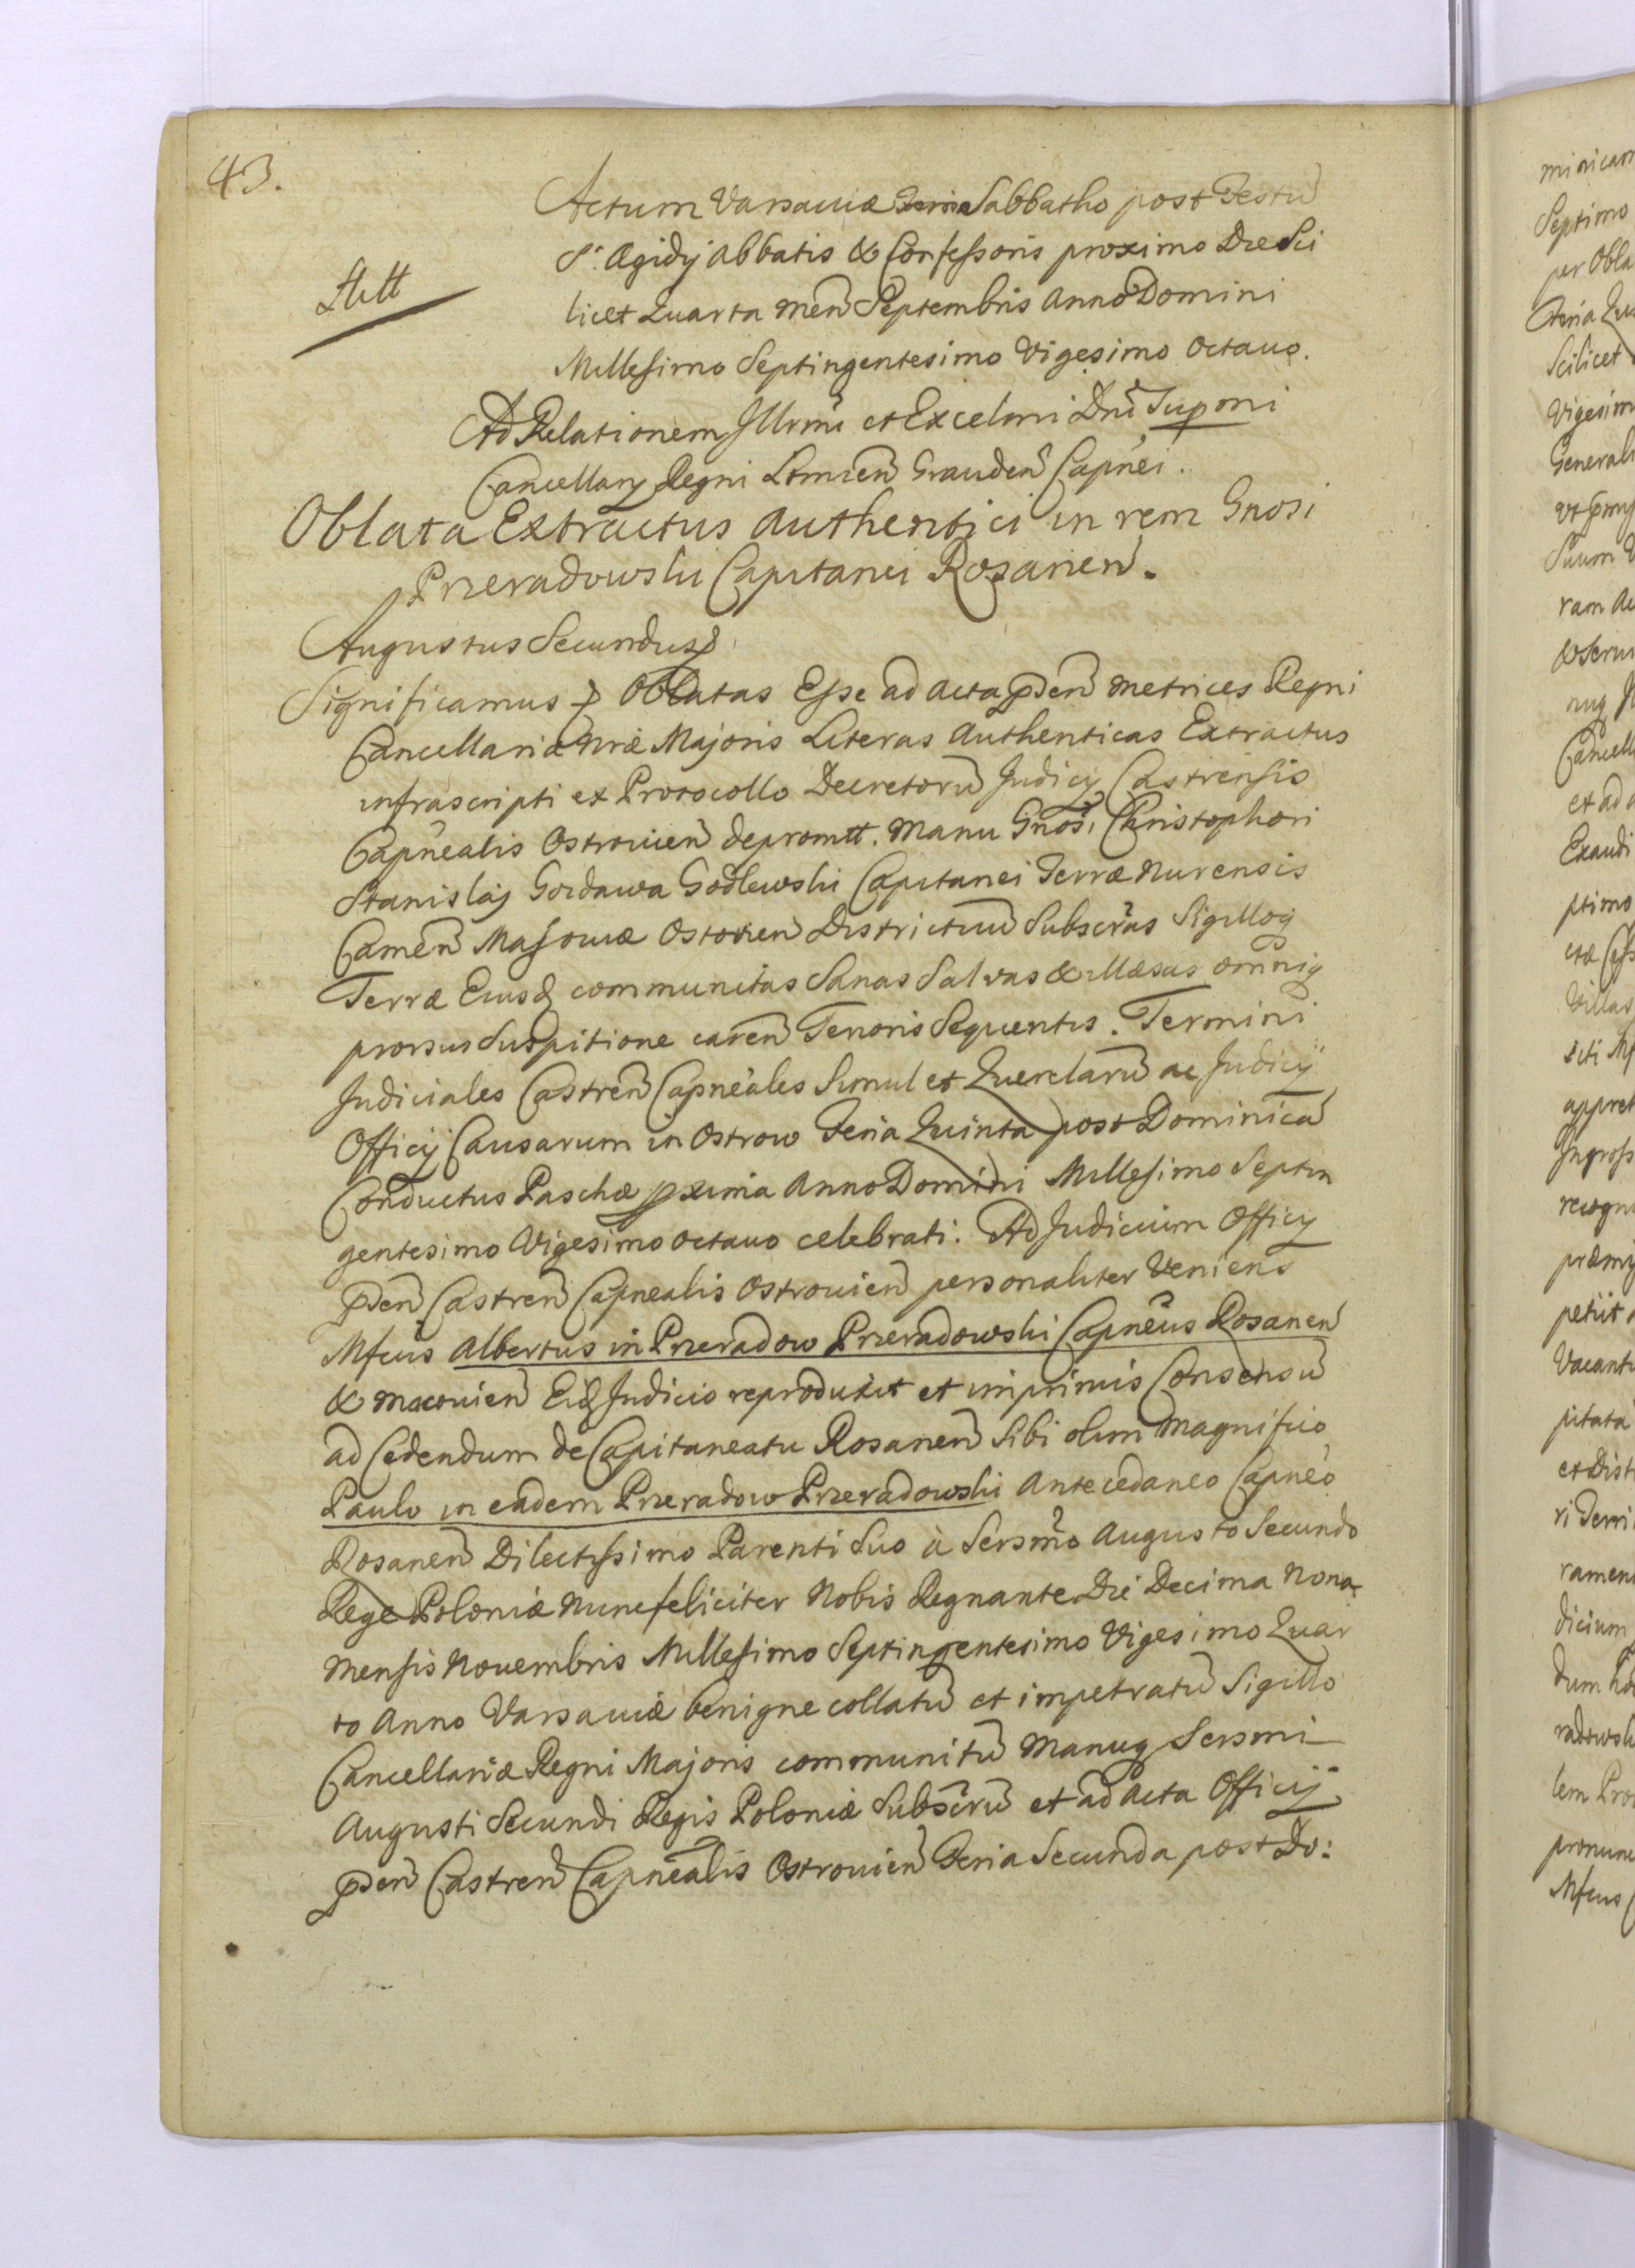 43.
Actum Varsaviæ Feria Sabbatho post Festū
S. Ægidij Abbatis & Confessoris proximo Die Sci
licet Quarta Men̄ Septembris Anno Domini
Millesimo Septingentesimo Vigesimo Octavo.
Ad Relationem Illrmi et Excelmi Dn̄i Supmi
Cancellarij Regni Łomzen̄ Grauden̄ Capnei.
Oblata Extractus Authentici in rem Gnosi
Przeradowski Capitanei Rosanien̄.
Augustus Secundus
Significamus Oblatas Esse ad Acta p̄sen̄ Metrices Regni
Cancellariæ Nræ Majoris Literas Authenticas Extractus
infrascripti ex Protocollo Decretorū Judicij Castrensis
Capn̄ealis Ostrovien̄ depromtt. Manu Gnosi Christophori
Stanislaj Gozdawa Godlewski Capitanei Terræ Nurensis
Camen̄ Masoviæ Ostovien̄ Districtuū Subscr̄as Sigilloq
Terræ Eiusd communitas Sanas Salvas & illæsas omn̄iq
prorsus Suspitione caren̄ Tenoris Sequentis. Termini
Judiciales Castren̄ Capn̄eales Simul et Querelarū ac Judicij
Officij Causarum in Ostrow Feria Quinta post Dominicā
Conductus Paschæ pxima Anno Domini Millesimo Septin
gentesimo Vigesimo Octavo celebrati. Ad Judicium Officij
p̄sen̄ Castren̄ Capnealis Ostrovien̄ personaliter Veniens
Mfcus Albertus in Przeradow Przeradowski Capn̄eus Rosanen̄
& Macovien̄ Eid Judicio reproduxit et imprimis Consensū
ad Cedendum de Capitaneatu Rosanen̄ Sibi olim Magnifico
Paulo in eadem Przeradow Przeradowski Antecedaneo Capn̄eo
Rosanen̄ Dilectissimo Parenti Suo à Sersm̄o Augusto Secundo
Rege Poloniæ Nunc feliciter Nobis Regnante Die Decima Nona
Mensis Novembris Millesimo Septingentesimo Vigesimo Quar
to Anno Varsaviæ benigne collatū et impetratū Sigillo
Cancellariæ Regni Majoris communitū Manuq Sersmi
Augusti Secundi Regis Poloniæ Subscr̄ū et ad Acta Officij
p̄sen̄ Castren̄ Capn̄ealis Ostrovien̄ Feria Secunda post Do: